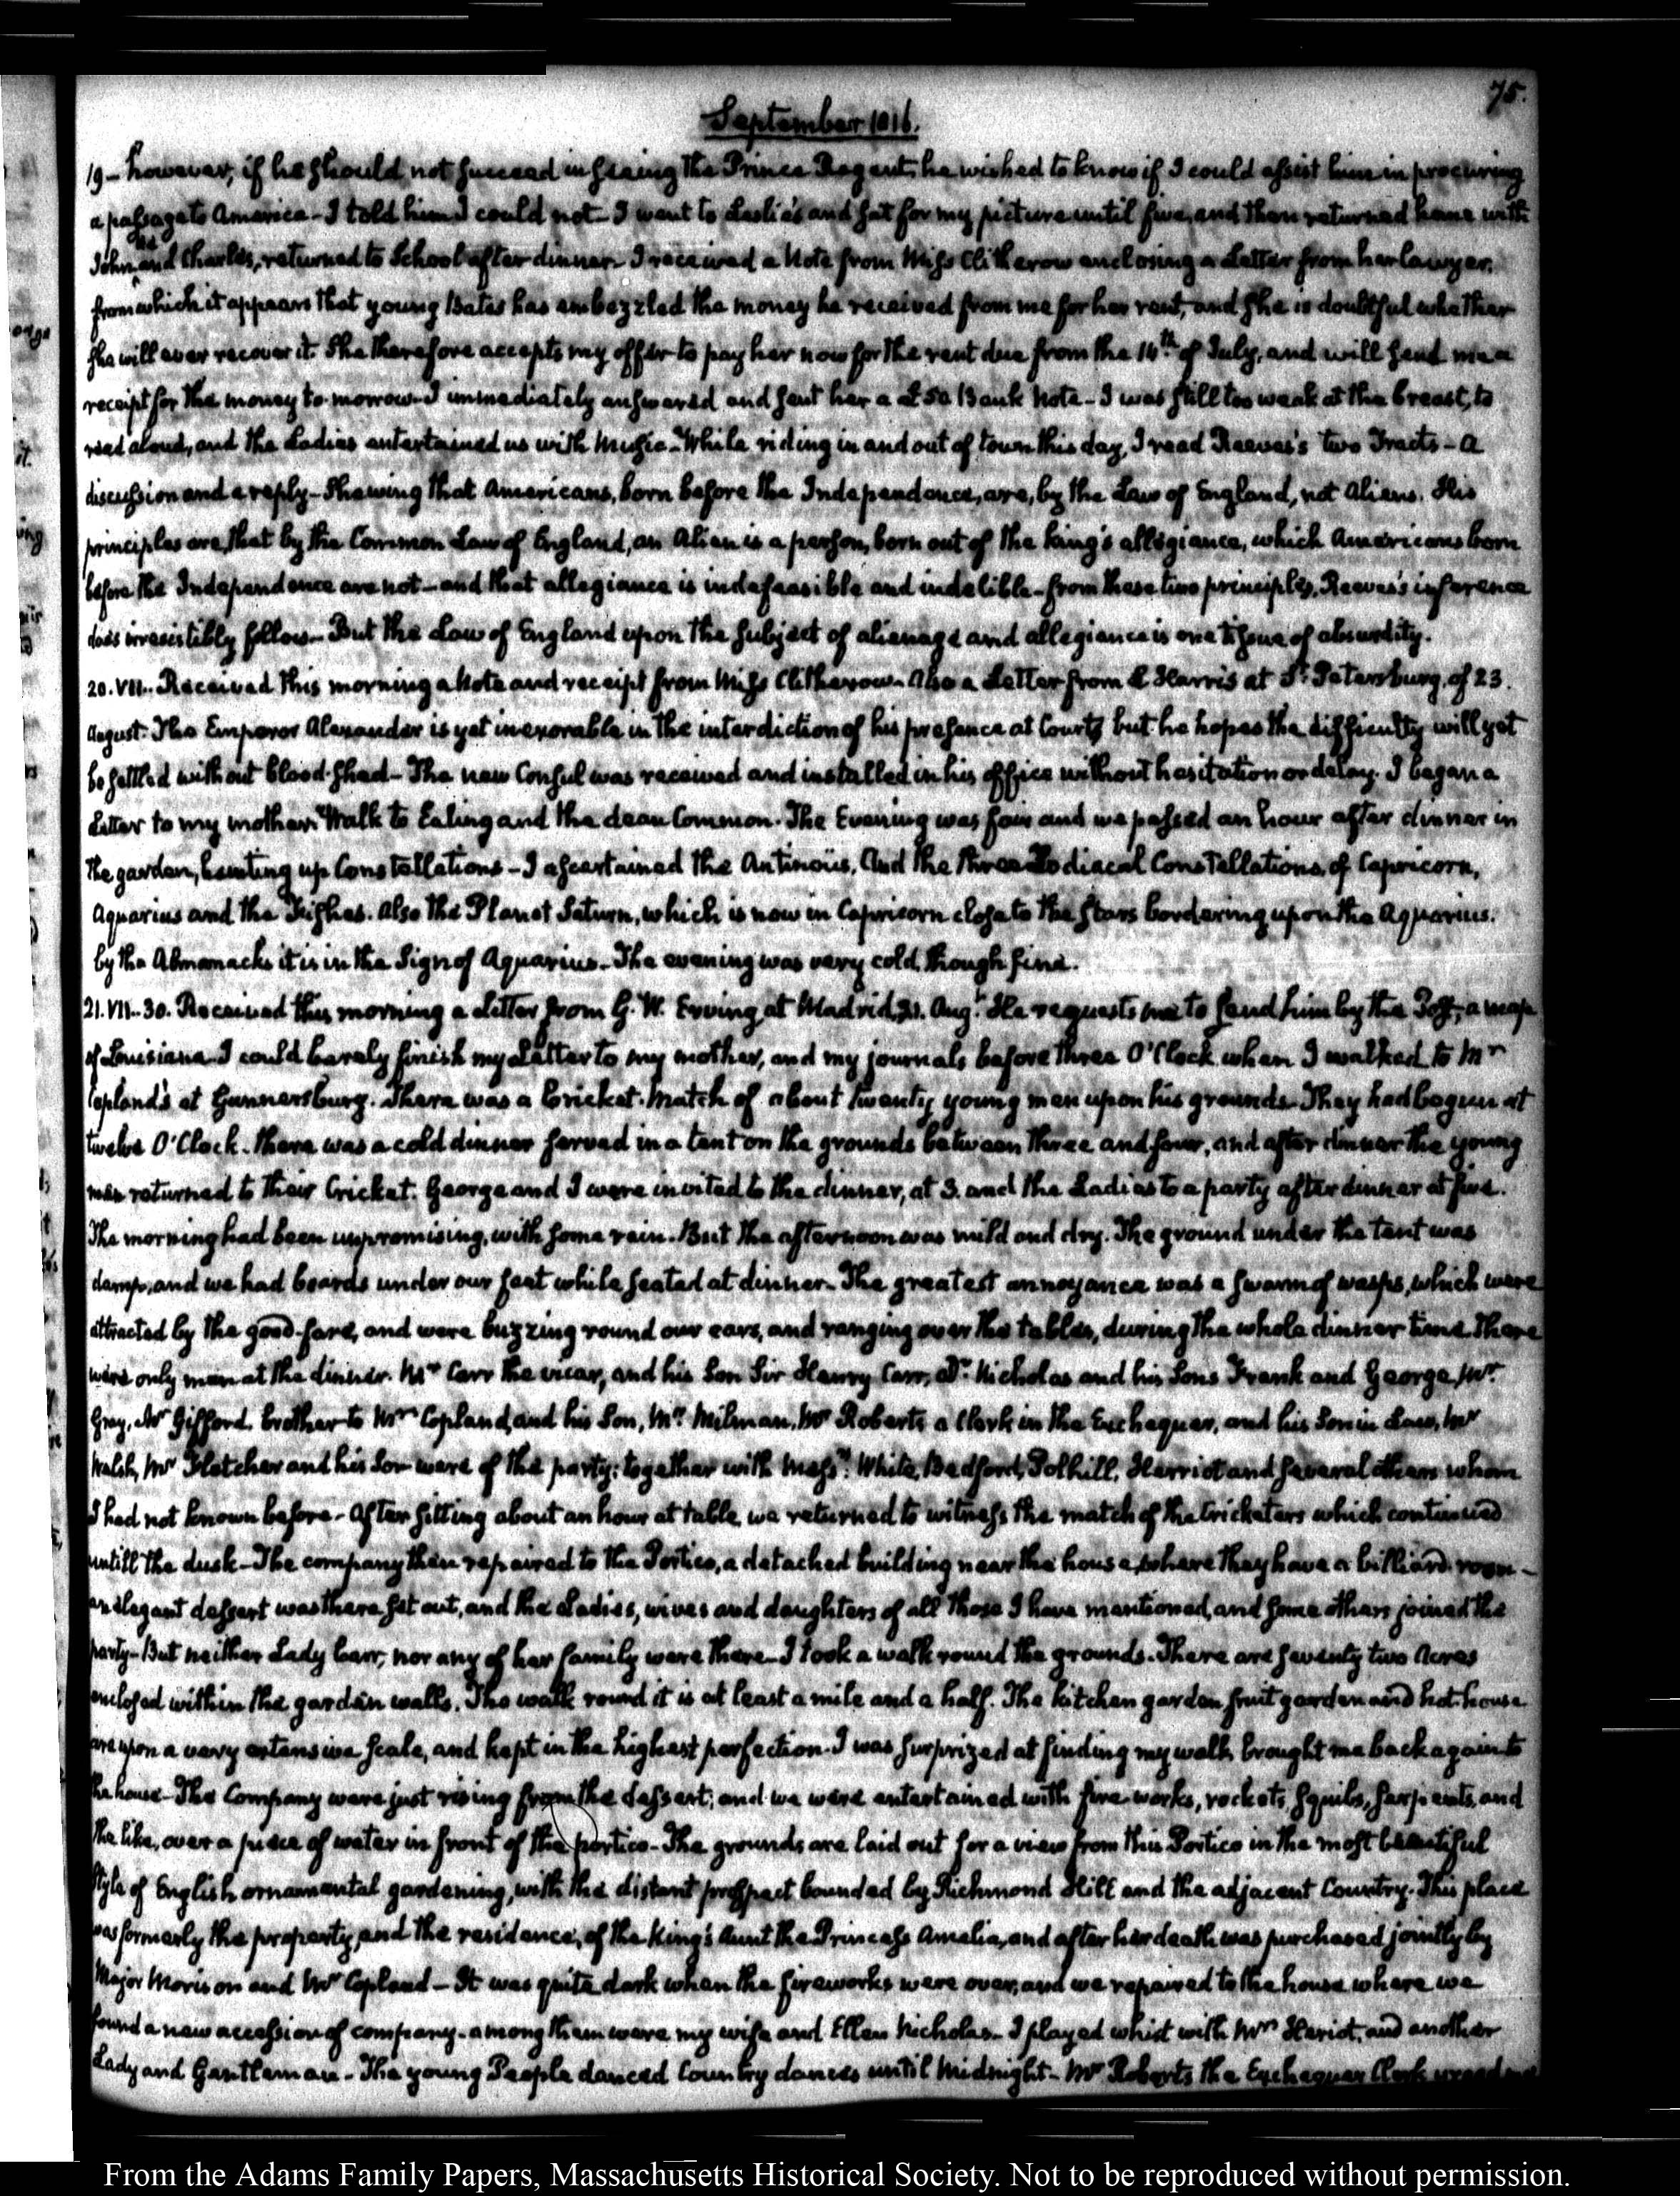 75.
September 1816.
19 – however, if he should not succeed in seeing the Prince Regent, he wished to know if I could assist him in procuring
a passage to America – I told him I could not – I went to Leslie's and sat for my picture until five, and then returned home with
John and Charles, returned to School after dinner – I received a Note from Miss Clitherow enclosing a Letter from her lawyer,
from which it appears that young Bates has embezzled the money he received from me for her rent, and she is doubtful whether
she will ever recover it. She therefore accepts my offer to pay her now for the rent due from the 14th of July, and will send me a
receipt for the money to-morrow – I immediately answered and sent her a £50 Bank Note – I was still too weak at the breast, to
read aloud, and the Ladies entertained us with Music – While riding in and out of town this day, I read Reeves's two Tracts – A
discussion and a reply – Shewing that Americans, born before the Independence, are, by the Law of England, not Aliens. His
principles are, that by the Common Law of England, an Alien is a person, born out of the king's allegiance, which Americans born
before the Independence are not – and that allegiance is indefeasible and indelible – from these two principles, Reeves's inference
does irresistibly follow – But the Law of England upon the subject of alienage and allegiance is one tissue of absurdity.
20. VII.. Received this morning a Note and receipt from Miss Clitherow. Also a Letter from L Harris at St. Petersburg, of 23.
August. The Emperor Alexander is yet inexorable in the interdiction of his presence at Court; but he hopes the difficulty will yet
be settled without blood-shed – The new Consul was received and installed in his office without hesitation or delay. I began a
Letter to my mother. Walk to Ealing and the dean Common. The Evening was fair and we passed an hour after dinner in
the garden, hunting up Constellations – I ascertained the Antinoüs, And the three Zodiacal Constellations, of Capricorn,
Aquarius and the Fishes. Also the Planet Saturn, which is now in Capricorn close to the stars bordering upon the Aquarius.
by the Almanacks it is in the Sign of Aquarius – The evening was very cold, though fine.
21. VII..30. Received this morning a Letter from G. W. Erving at Madrid, 31. Augt. He requests me to send him by the Post, a map
of Louisiana – I could barely finish my Letter to my mother, and my journals before three O'Clock when I walked to Mr
Copland's at Gunnersburg. There was a Cricket-Match of about twenty young men upon his grounds – They had begun at
twelve O'Clock – there was a cold dinner served in a tent on the grounds between three and four, and after dinner the young
men returned to their Cricket. George and I were invited to the dinner, at 3. and the Ladies to a party after dinner at five.
The morning had been unpromising, with some rain. But the afternoon was mild and dry. The ground under the tent was
damp, and we had boards under our feet while seated at dinner – The greatest annoyance was a swarm of wasps, which were
attracted by the good-fare, and were buzzing round our ears, and ranging over the tables, during the whole dinner time. There
were only men at the dinner. Mr Carr the vicar, and his Son Sir Henry Carr, Dr. Nicholas and his Sons Frank and George, Mr.
Gray, Mr Gifford, brother to Mrs Copland, and his Son, Mr Milman, Mr Roberts a Clerk in the Exchequer, and his Son in Law, Mr
Walsh, Mr Fletcher and his Son were of the party; together with Messrs. White, Bedford, Polhill, Herriot and several others whom
I had not known before – After sitting about an hour at table, we returned to witness the match of the Cricketers which continued
untill the dusk – The company then repaired to the Portico, a detached building near the house, where they have a billiard room –
an elegant dessert was there set out, and the Ladies, wives and daughters of all those I have mentioned, and some others joined the
party – But neither Lady Carr, nor any of her family were there – I took a walk round the grounds. There are seventy two Acres
enclosed within the garden walls. The walk round it is at least a mile and a half. The kitchen garden, fruit garden and hot-house
are upon a very extensive scale, and kept in the highest perfection. I was surprized at finding my walk brought me back again to
the house – The Company were just rising from the dessert; and we were entertained with fire-works, rockets, squibs, serpents, and
the like, over a piece of water in front of the portico – The grounds are laid out for a view from this Portico in the most beautiful
Style of English ornamental gardening, with the distant prospect bounded by Richmond Hill and the adjacent Country. This place
was formerly the property, and the residence, of the King's Aunt the Princess Amelia, and after her death was purchased jointly by
Major Morison and Mr Copland – It was quite dark when the fireworks were over, and we repaired to the house where we
found a new accession of company – among them were my wife and Ellen Nicholas – I played whist with Mrs Heriot, and another
Lady and Gentleman – The young People danced Country dances until Midnight – Mr Roberts the Exchequer Clerk
From the Adams Family Papers, Massachusetts Historical Society. Not to be reproduced without permission.